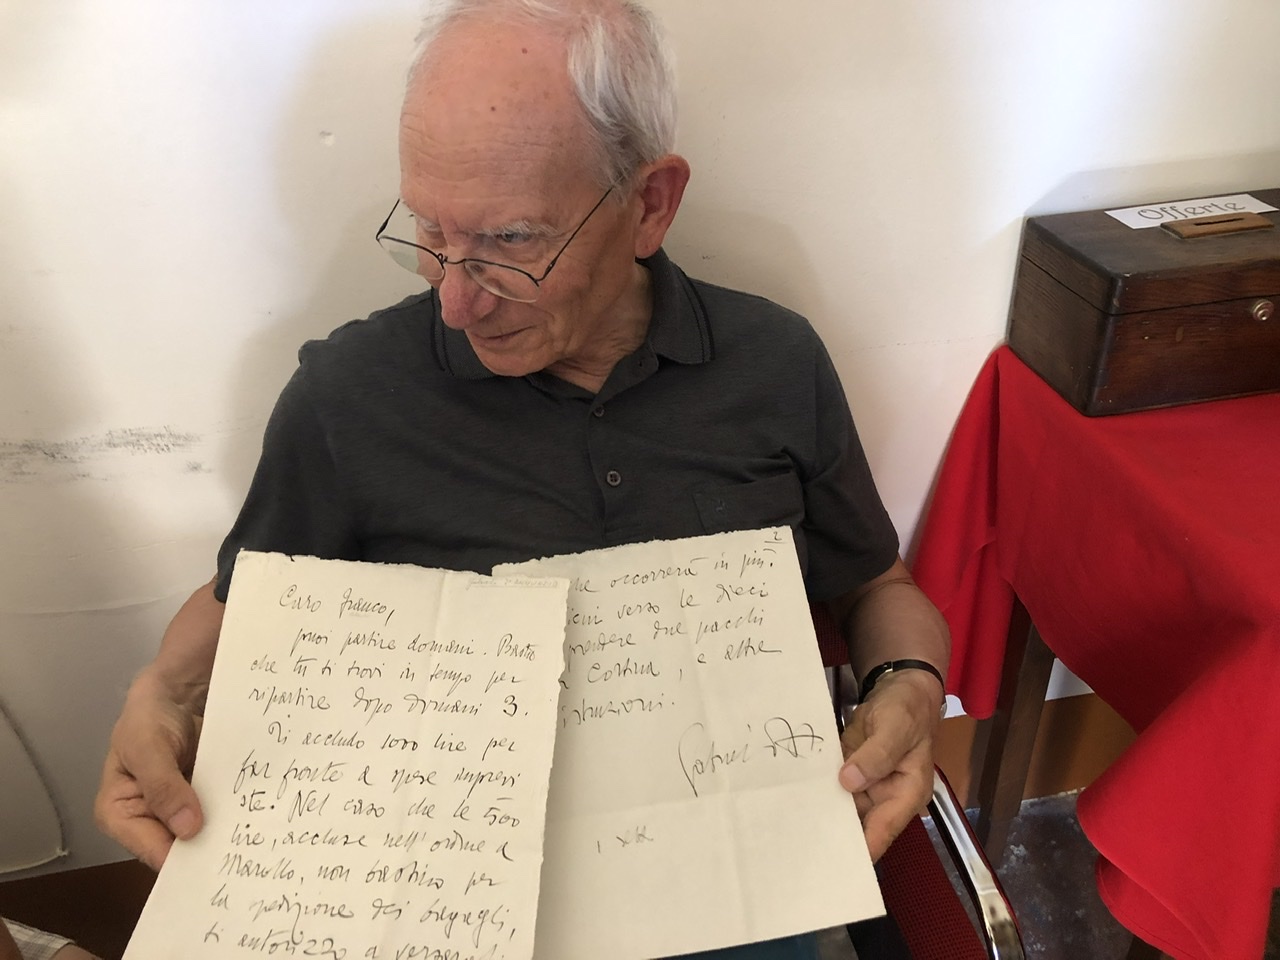 Offerte
Caro Franco,
puoi partire domani. Basta
che tu ti trovi in tempo per
ripartire dopo domani 3.
Ti accludo 1000 lire per
far fronte a spese imprevi
ste. Nel caso che le 500
lire, accluse nell'ordine a
Marollo, non bastino per
la spedizione dei bagagli,
ti autorizzo a
2
che occorrerà in più.
verso le dieci
prendere due pacchi
Cortina, e altre
istruzioni.